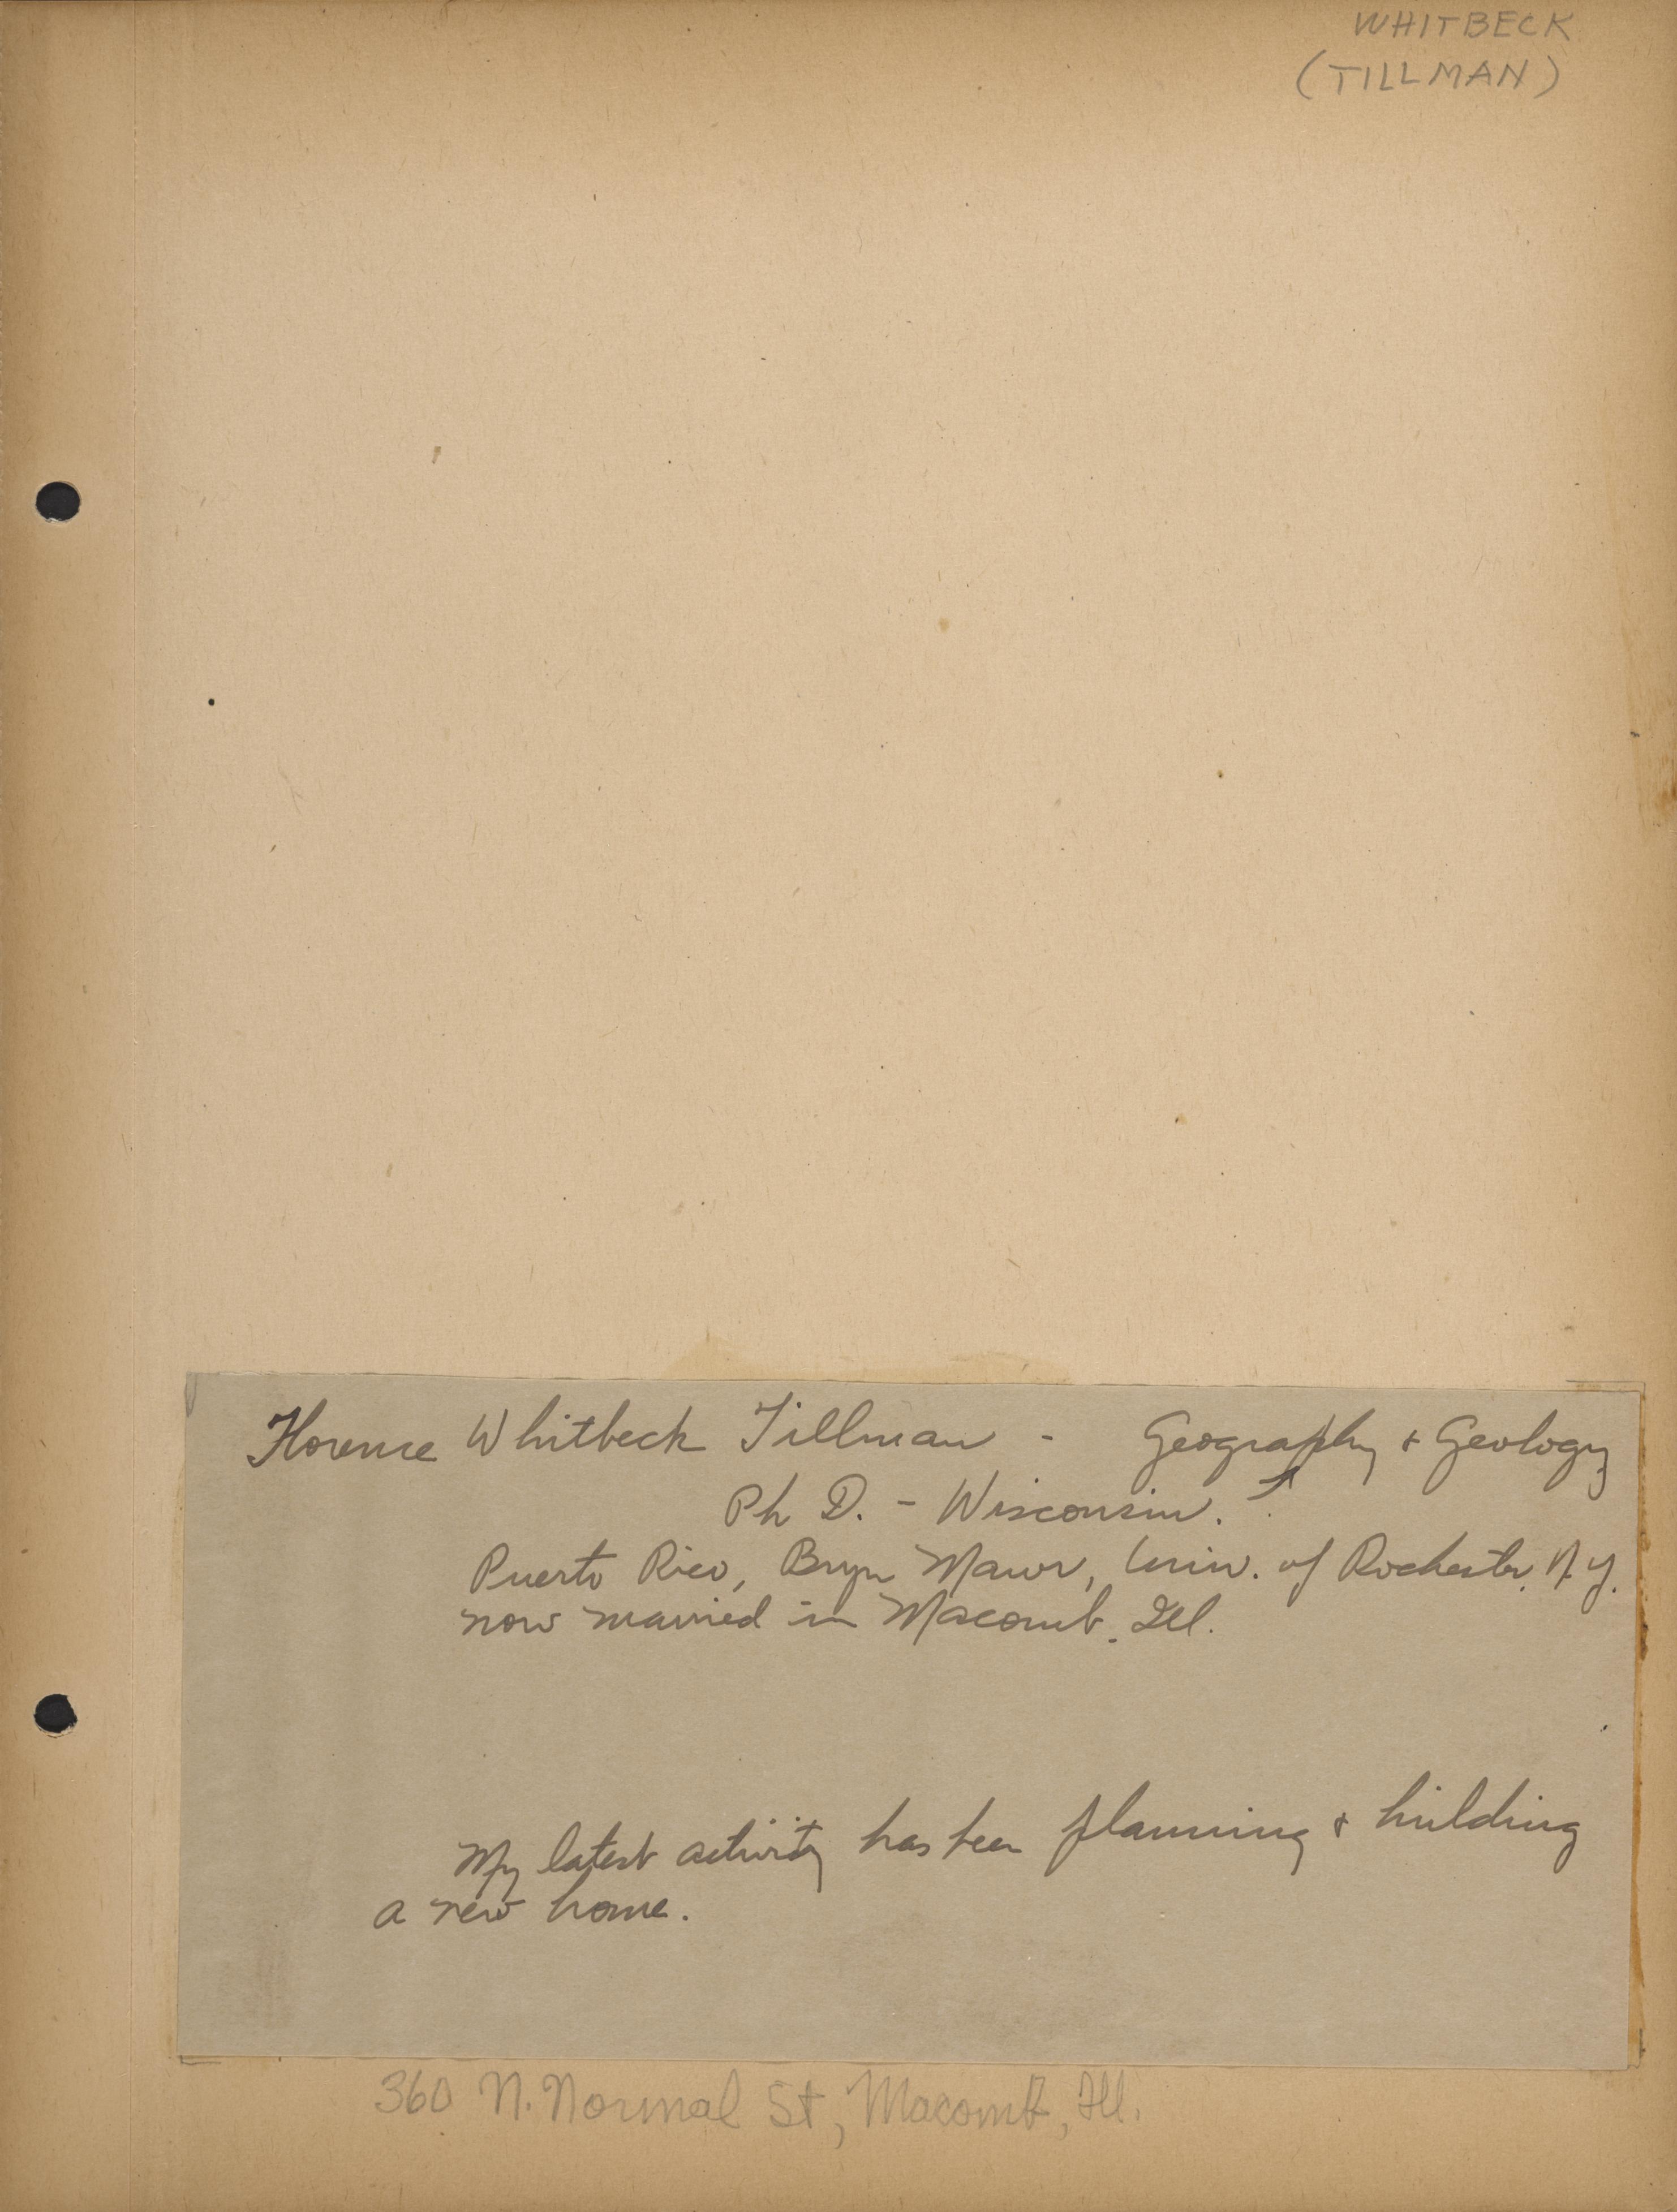 WHITBECK
(TILLMAN)
Florence Whitbeck Tillman - Geography & Geology
Ph D. - Wisconsin.
Puerto Rico, Bryn Mawr, Univ. of Rochester, N.Y.
now married in Macomb, Ill.
My latest activity has been planning & building
a new home.
360 N. Normal St, Macomb, Ill.